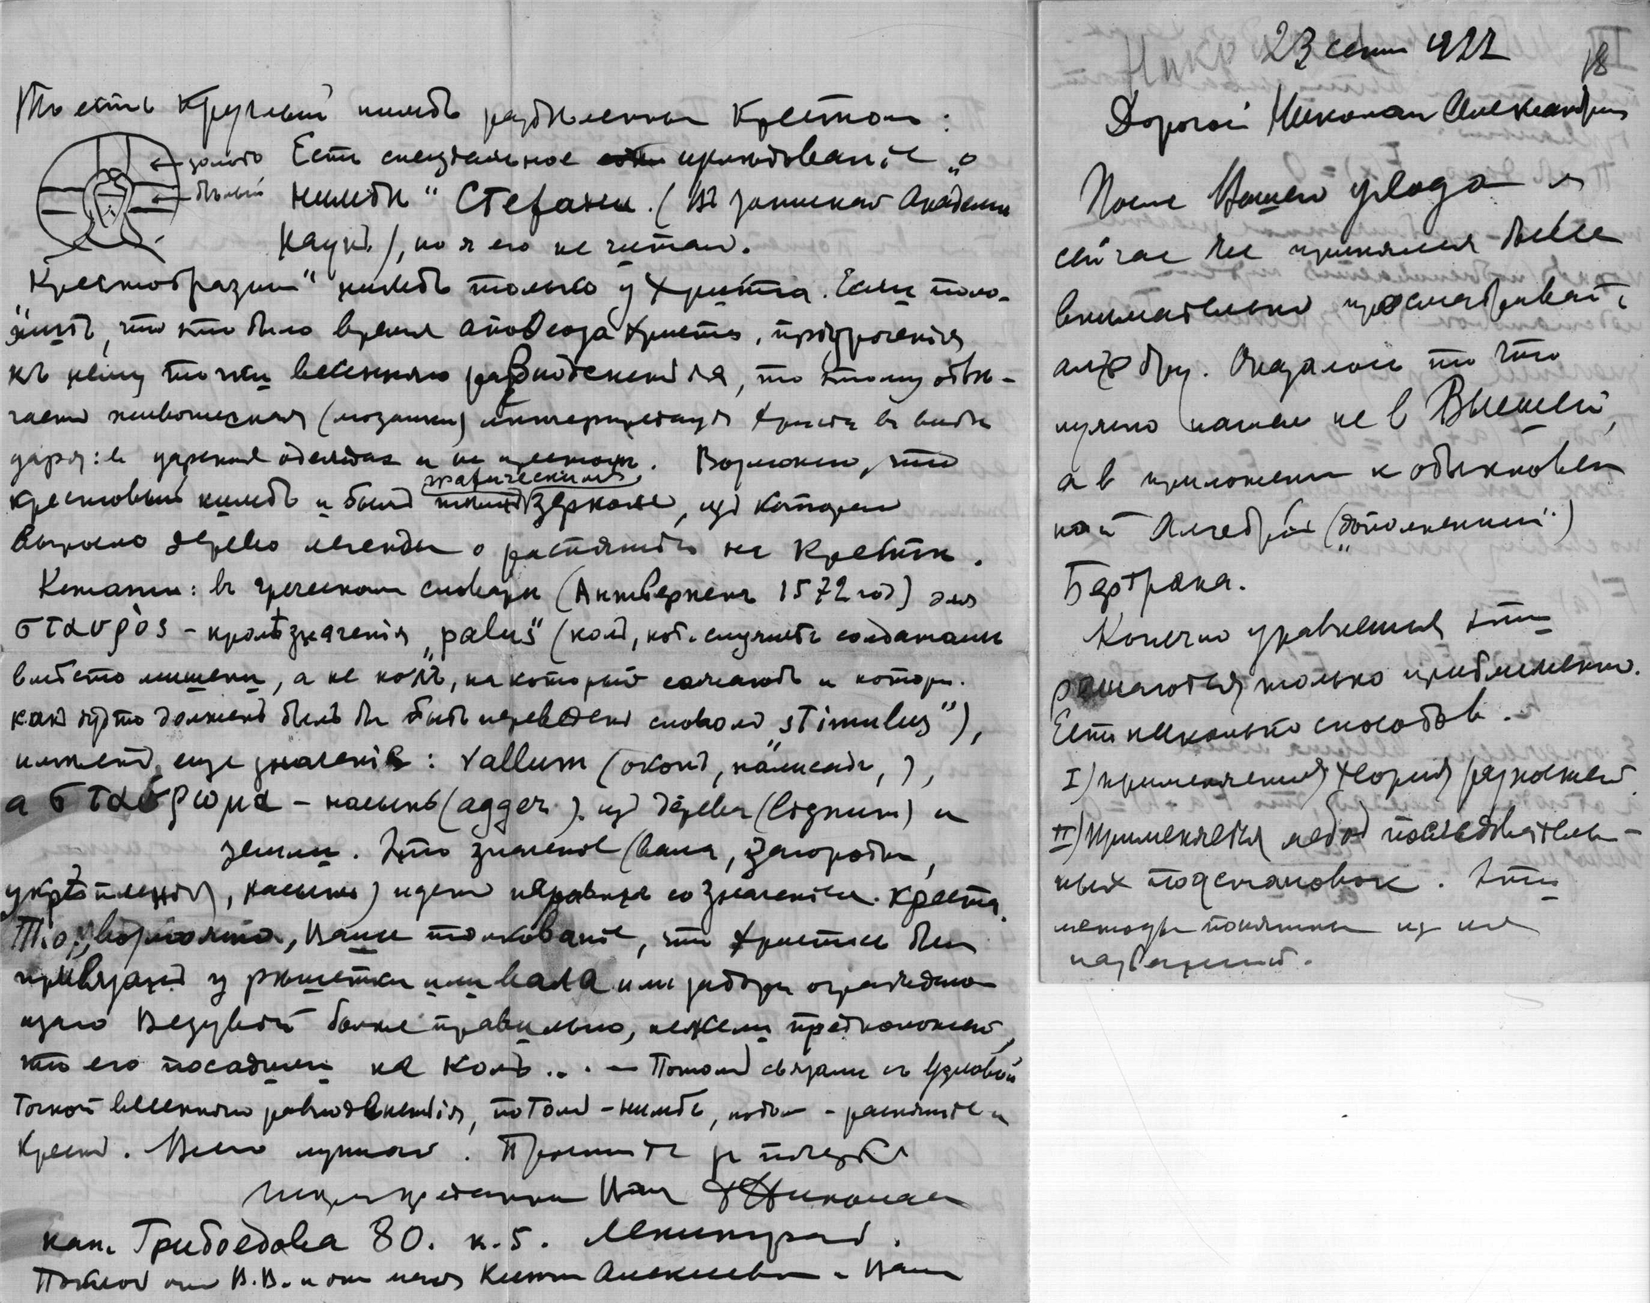 То есть Круглый нимбъ раздѣленный Крестом:
золото
бѣлый
Есть специальное изслѣдованіе „о
нимбѣ" Стефани. (Въ записках Академіи
Наукъ), но я его не читал.
„Крестообразный" нимбъ только у Христа. Если поло-
жить, что это было время апоѳеоза Христа, пріуроченія
къ нему точки весенняго равноденствія, то этому отвѣ-
чает живописная (мозаики) интерпретація Христа въ видѣ
царя: в царских одеждах и не
Возможно, что
крестовый нимбъ и был магическимъ зеркалом, изъ котораго
выросло дерево легенды о распятіи на Крестѣ.
Кстати: въ греческом словарѣ (Антверпенъ 1572 год) для
σταυρὸς – кромѣ значенія „palus" (колъ, кот. служитъ солдатами
вмѣсто мишени, а не колъ, на который сажаютъ и котор.
какъ будто долженъ былъ бы быть переведенъ словом „stimulus"),
имѣетъ еще значенія: vallum (окопъ, палисадъ, ),
а σταύρωμα – насыпь (agger) изъ дерева (lignum) и
земли. Это значеніе (вала, загородки,
укрѣпленія, насыпи) идет наравнѣ со значеніем Креста.
Т.о., вѣроятно, Ваше толкованіе, что Христос был
привязанъ у рѣшетки или вала или забора
Везувій болѣе правильно, нежели предположеніе,
что его посадили на Колъ... — Потомъ связали съ Узловой
точкой весенняго равноденствія, потомъ – нимбъ, потом – распятіе и
Крест. Всего лучшаго. Простите за
Ваш
кан. Грибоедова 80. к. 5. Ленинград.
от В.В. и от меня Алексеевнѣ и Вам
23 сент 1922
18
Дорогой Николай Александрович
После Вашего ухода я
сейчас же принялся более
внимательно просматривать
алгебру. Оказалось что что
нужно нашел не в Высшей,
а в приложении к обыкновен
ной Алгебрѣ („дополнений")
Бертрана.
Конечно уравнения эти
решаются только приближенно.
Есть несколько способов.
I) применяется теория разностей
II) Применяется метод последователь-
ных подстановок. Эти
методы понятны из их
названий.